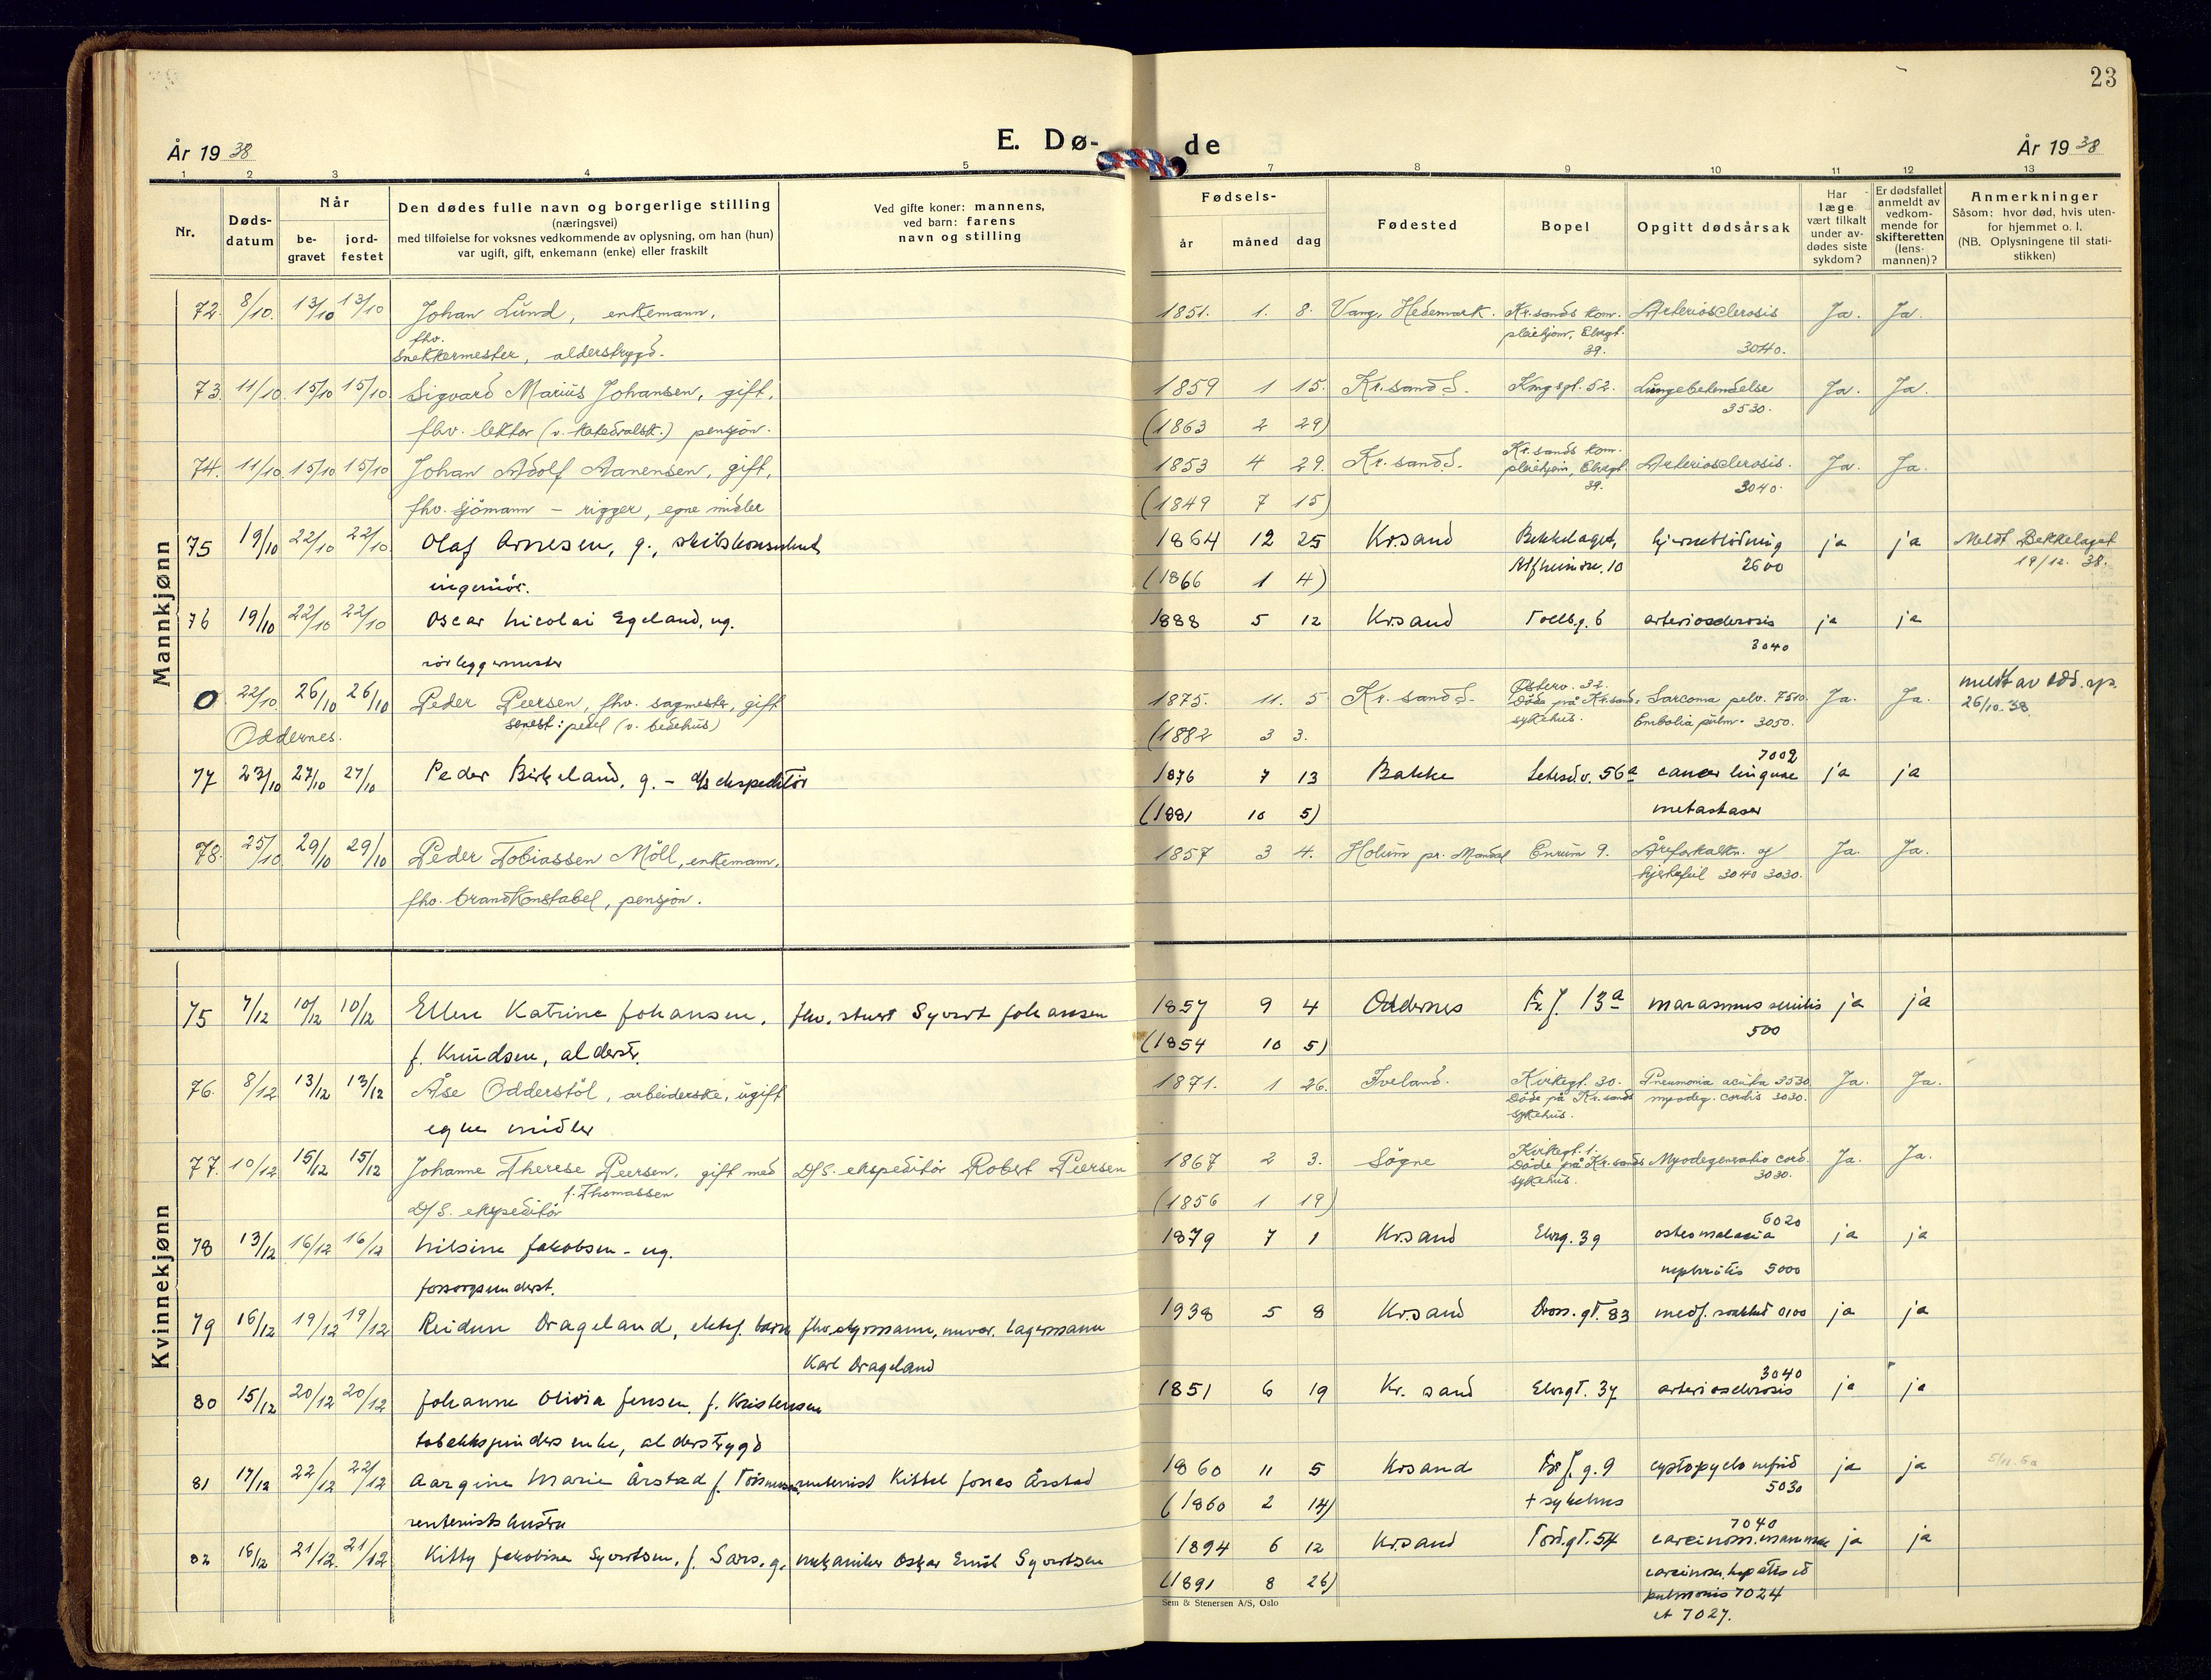 23
År 1938
E. Dø-
de
År 1938
1 2 3 4 5 7 8 9 10 11 12 13
Nr.
Døds-
datum
Når
be-
gravet
jord-
festet
Den dødes fulle navn og borgerlige stilling
(næringsvei)
med tilføielse for voksnes vedkommende av oplysning, om han (hun)
var ugift, gift, enkemann (enke) eller fraskilt
Ved gifte koner: mannens,
ved barn: farens
navn og stilling
Fødsels-
år måned dag
Fødested
Bopel
Opgitt dødsårsak
Har
læge
vært tilkalt
under av-
dødes siste
sykdom?
Er dødsfallet
anmeldt av
vedkom-
mende for
skifteretten
(lens-
mannen)?
Anmerkninger
Såsom: hvor død, hvis uten-
for hjemmet o. l.
(NB. Oplysningene til stati-
stikken)
Mannkjønn
72. 8/10. 13/10 13/10 Johan Lund, enkemann, 1851. 1. 8. Vang, Hedemark. Kr.sands kom. Arteriosclerosis Ja. Ja.
fhv. pleiehjem, Elvegt.
snekkermester, alderstrygd. 39. 3040.
73. 11/10. 15/10 15/10. Sigvard Marius Johansen, gift, 1859 1 15. Kr.sand S. Kongsgt. 52. Lungebetendelse Ja. Ja.
3530.
fhv. lektor (v. katedralsk.) pensjon. (1863 2 29)
74. 11/10. 15/10 15/10 Johan Adolf Aanensen, gift, 1853 4 29. Kr.sand S. Kr.sands kom. pleiehjem, Elvegt. 39. Arteriosclerosis. Ja. Ja.
3040.
fhv. sjömann – rigger, egne midler (1849 7 15)
75 19/10 22/10 22/10. Olaf Arnesen, g., skibskonsulent 1864 12 25 Kr.sand Bekkelaget, hjerneblödning ja ja Meldt Bekkelaget
ingeniör. (1866 1 4) 10 2600 19/12. 38.
76 19/10 22/10 22/10 Oscar Nicolai Egeland, ug. 1888 5 12 Kr.sand Tollb.g. 6 arteriosclerosis ja ja
rörleggermester 3040
0 22/10. 26/10 26/10 Peder Peersen, fhv. sagmester, gift 1875. 11. 5 Kr.sand S. Østerv. Döde på Kr.sands sykehus. Sarcoma pelv. 7510. Ja. Ja. meldt av Odd. spr.
senest: pedel (v. bedehus) Embolia pulm. 3050. 26/10. 38
Oddernes. (1882 3 3.
77 23/10 27/10 27/10 Peder Birkeland, g. – d/s ekspeditör 1876 7 13 Bakke Setesd.v. 56a 7002 cancer linguae ja ja
(1881 10 5) metastaser
78. 25/10 29/10 29/10 Peder Tobiassen Möll, enkemann, 1857 3 4. Holum pr. Mandal Enrum 9. Åreforkalkn. og Ja. Ja.
hjertefeil 3040 3030.
fhv. brandkonstabel, pensjon.
Kvinnekjønn
75 7/12 10/12 10/12 Ellen Katrine Johansen, fhv. stuert Syvert Johansen 1857 9 4 Oddernes 13a marasmus senilis ja ja
500
f. Knudsen, alderstr. (1854 10 5)
76. 8/12 13/12 13/12 Åse Odderstöl, arbeiderske, ugift 1871. 1 26. Iveland. Kirkegt. 30. Döde på Kr.sands sykehus. Pneumonia acuta 3530 Ja. Ja.
egne midler myodeg. cordis 3030.
77. 10/12 15/12 15/12 Johanne Therese Peersen, gift med D/S. ekspeditör Robert Peersen 1867 2 3. Sögne Kirkegt. 1. Döde på Kr.sands sykehus. Myodegeneratio cord. Ja. Ja.
f. Thomassen 3030.
D/S. ekspeditör (1856 1 19)
78 13/12 16/12 16/12 Nilsine Jakobsen – ug. 1879 7 1 Kr.sand Elvg. 39 6020 osteomalacia ja ja
forsorgsunderst. nephritis 5000
79 16/12 19/12 19/12 Reidun Drageland, ektef. barn fhv. styrmann, nuvær. lagermann 1938 5 8 Kr.sand Dron. gt. 83 medf. svakhet 0100 ja ja
Karl Drageland
80 15/12 20/12 20/12 Johanne Olivia Jensen, f. Kristensen 1851 6 19 Kr.sand Elvegt. 37 3040 arteriosclerosis ja ja
tobakkspinders enke, alderstrygd
81 17/12 22/12 22/12 Aargine Marie Årstad f. rentenist Kittel Jonas Årstad 1860 11 5 Kr.sand g. 9 cystopyelo nefrid ja ja
5030
rentenists hustru (1860 2 14) + sykehus
82 16/12 21/12. 21/12 Kitty Jakobine Syvertsen, f. Sars. g. mekaniker Oskar Emil Syvertsen 1894 6 12 Kr.sand Tord.gt. 54 7040 carcinom. mammae ja ja
(1891 8 26) carcinom. hepatis et
pulmonis 7024
et 7027.
Sem & Stenersen A/S, Oslo